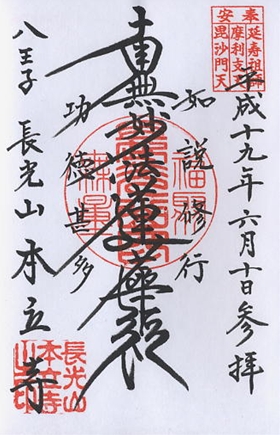 奉安
延寿祖師
摩利支天
毘沙門天
平成十九年六月十日参拝
如説修行
南無妙法蓮華経
功徳甚多
八王子 長光山 本立寺
長光山
本立寺